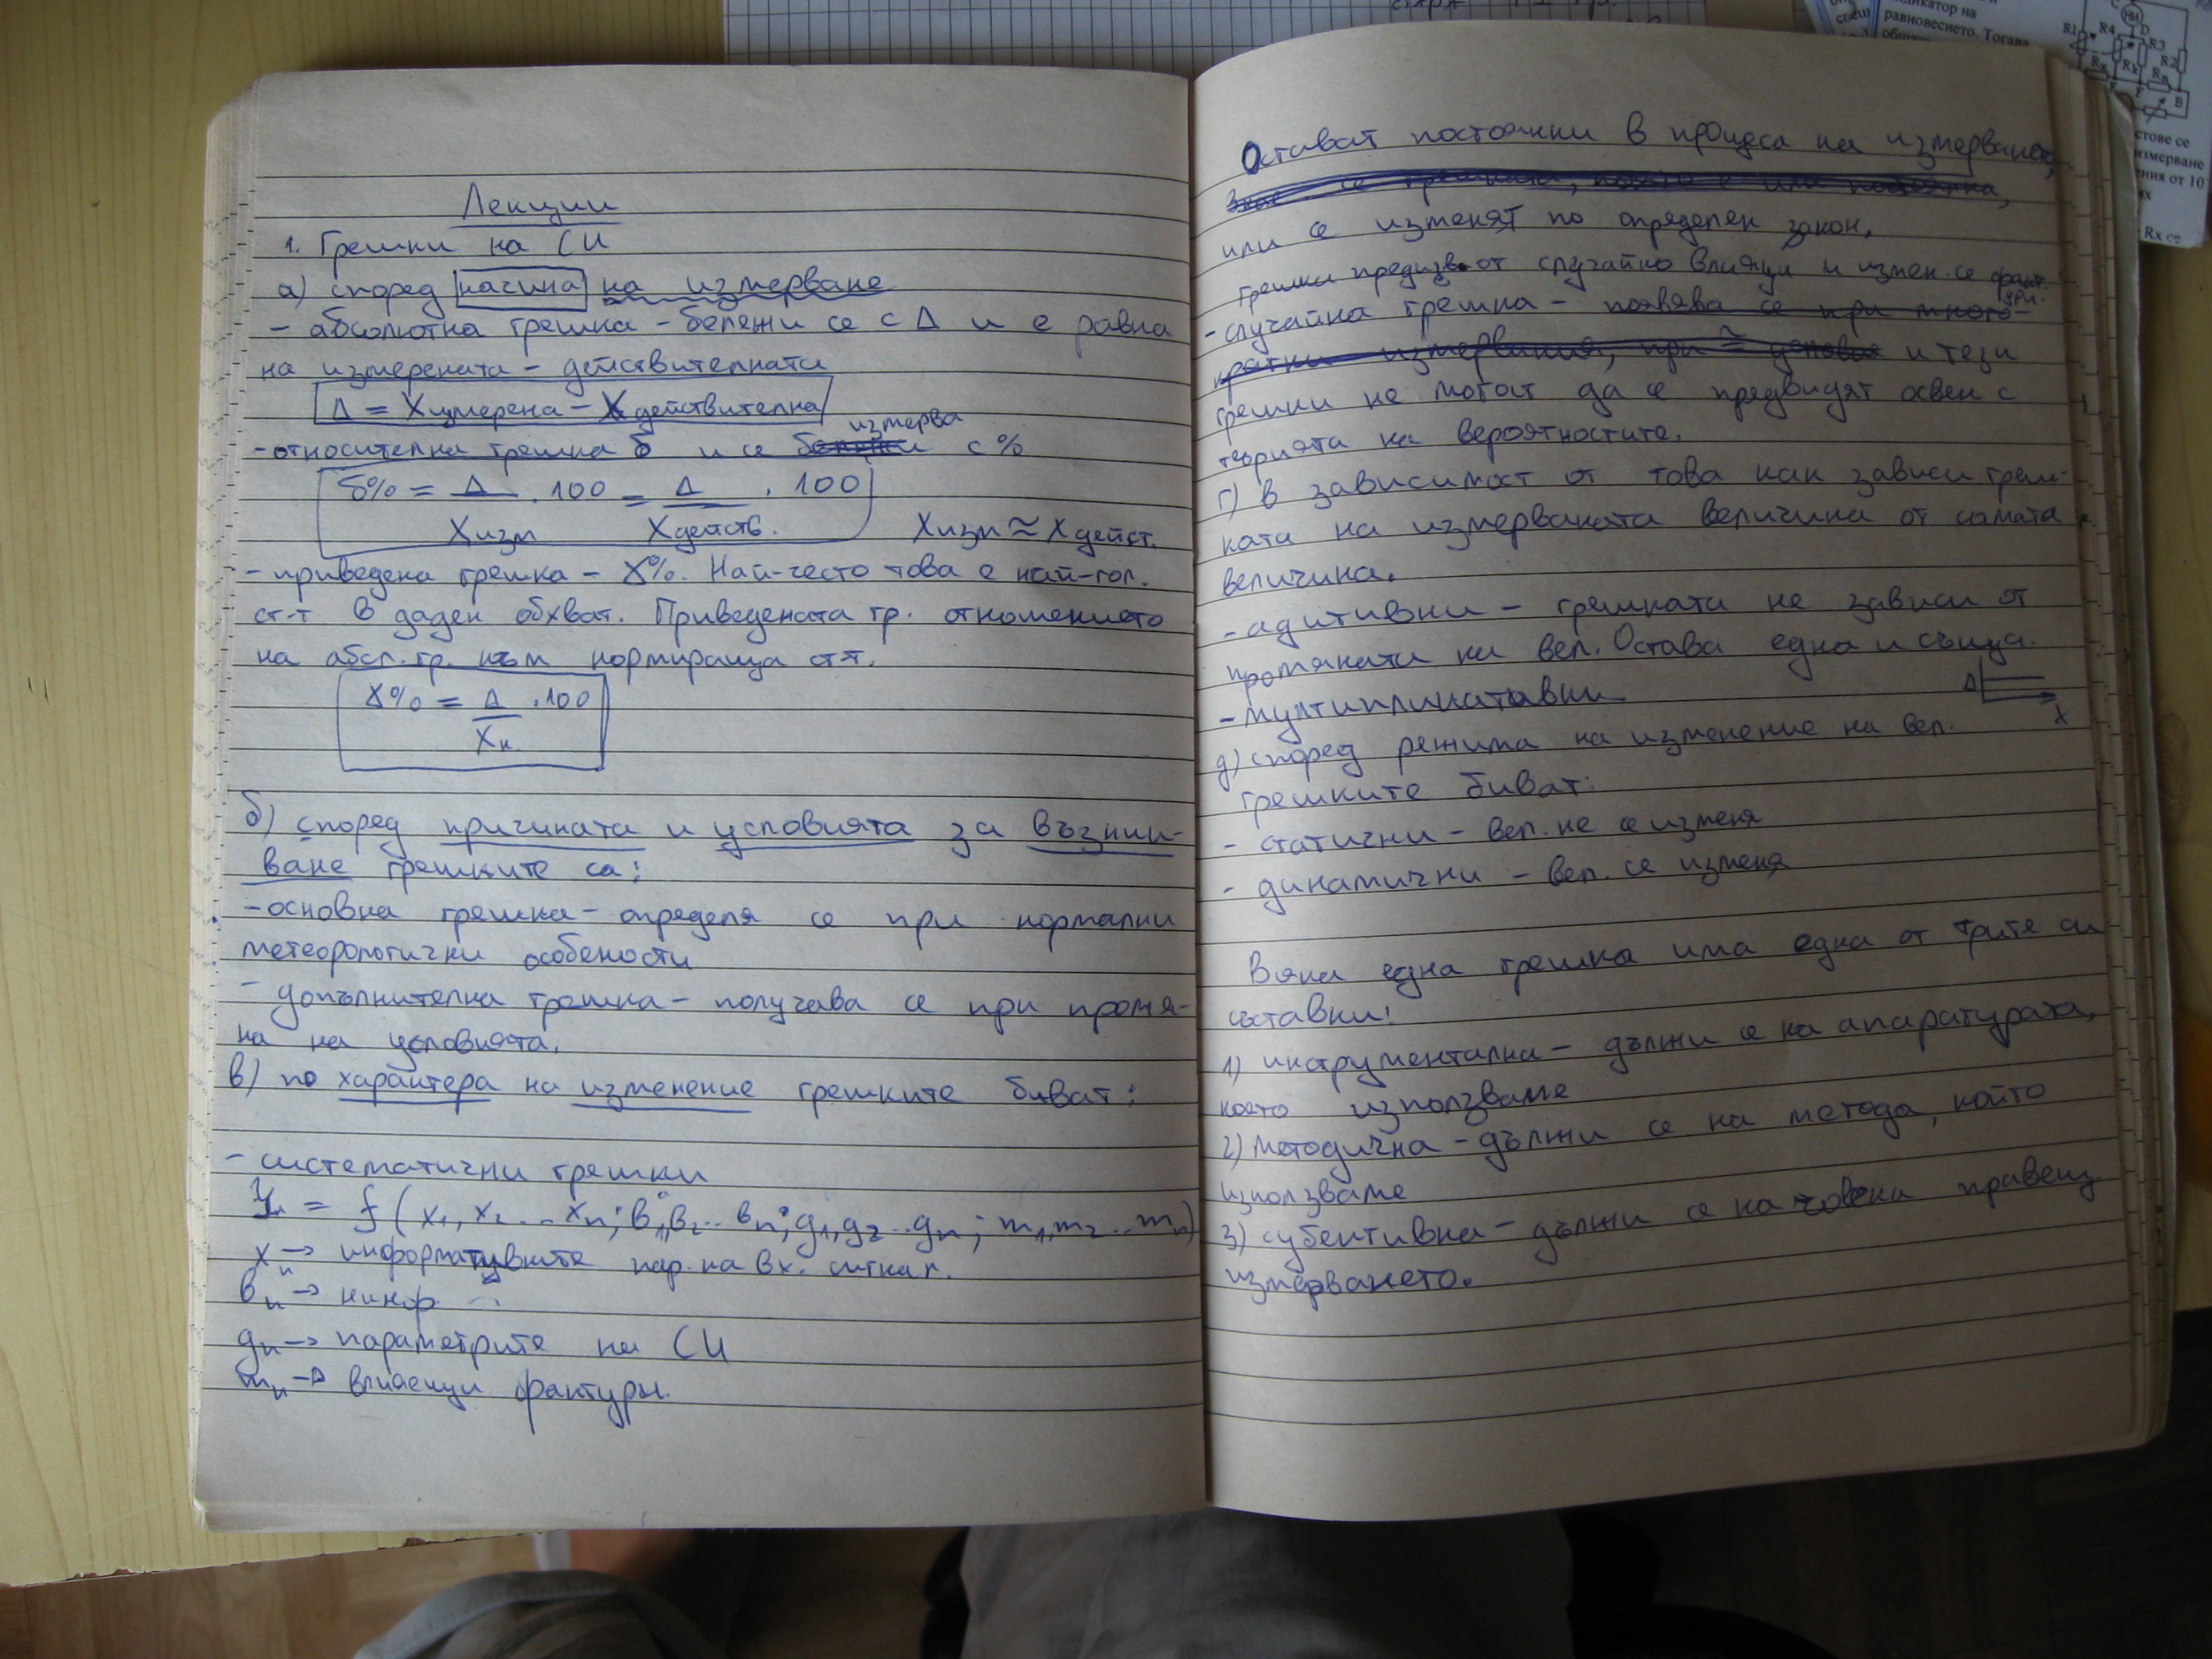 Лекции
1. Грешки на СИ
а) според начина на измерване
- абсолютна грешка - бележи се с Δ и е равна
на измерената - действителната
Δ = Xизмерена - Xдействителна
измерва
- относителна грешка δ и се бележи с %
δ% = Δ/Xизм . 100 = Δ/Xдейств. . 100
Xизм ≈ Xдейст.
- приведена грешка - γ%. Най-често това е най-гол.
ст-т в даден обхват. Приведената гр. отношението
на абсл. гр. към нормираща ст-т.
γ% = Δ/Xн . 100
б) според причината и условията за възник-
ване грешките са:
- основна грешка - определя се при нормални
метеорологични особености
- допълнителна грешка - получава се при промя-
на на условията.
в) по характера на изменение грешките биват:
- систематични грешки
y = f (x1, x2 .. xn; в1, в2 .. вn; g1, g2 .. gn; m1, m2 .. mn)
xn → информативните пар. на вх. сигнал.
вn → нинф
gn → параметрите на СИ
mn → влияещи фактуры.
Остават постоянни в процеса на измерването,
се грешката, която е или постоянна,
или се изменят по определен закон.
Грешки предизв. от случайно влияещи и измен. се факт.
- случайна грешка - появява се при много-
кратни измервания, при ≈ условия и тези
грешки не могат да се предвидят освен с
теорията на вероятностите.
г) в зависимост от това как зависи греш-
ката на измерваната величина от самата
величина.
- адитивни - грешката не зависи от
промяната на вел. Остава една и съща.
Δ
X
- мултипликативни
д) според режима на изменение на вел.
грешките биват:
- статични - вел. не се изменя
- динамични - вел. се изменя
Всяка една грешка има една от трите си
съставки:
1) инструментална - дължи се на апаратурата,
която използваме
2) методична - дължи се на метода, който
използваме
3) субективна - дължи се на човека правещ
измерването.
равновесието. Тогава
R1
R4
D
R3
R2
B
стове се
измерване
ния от 10
Rx се